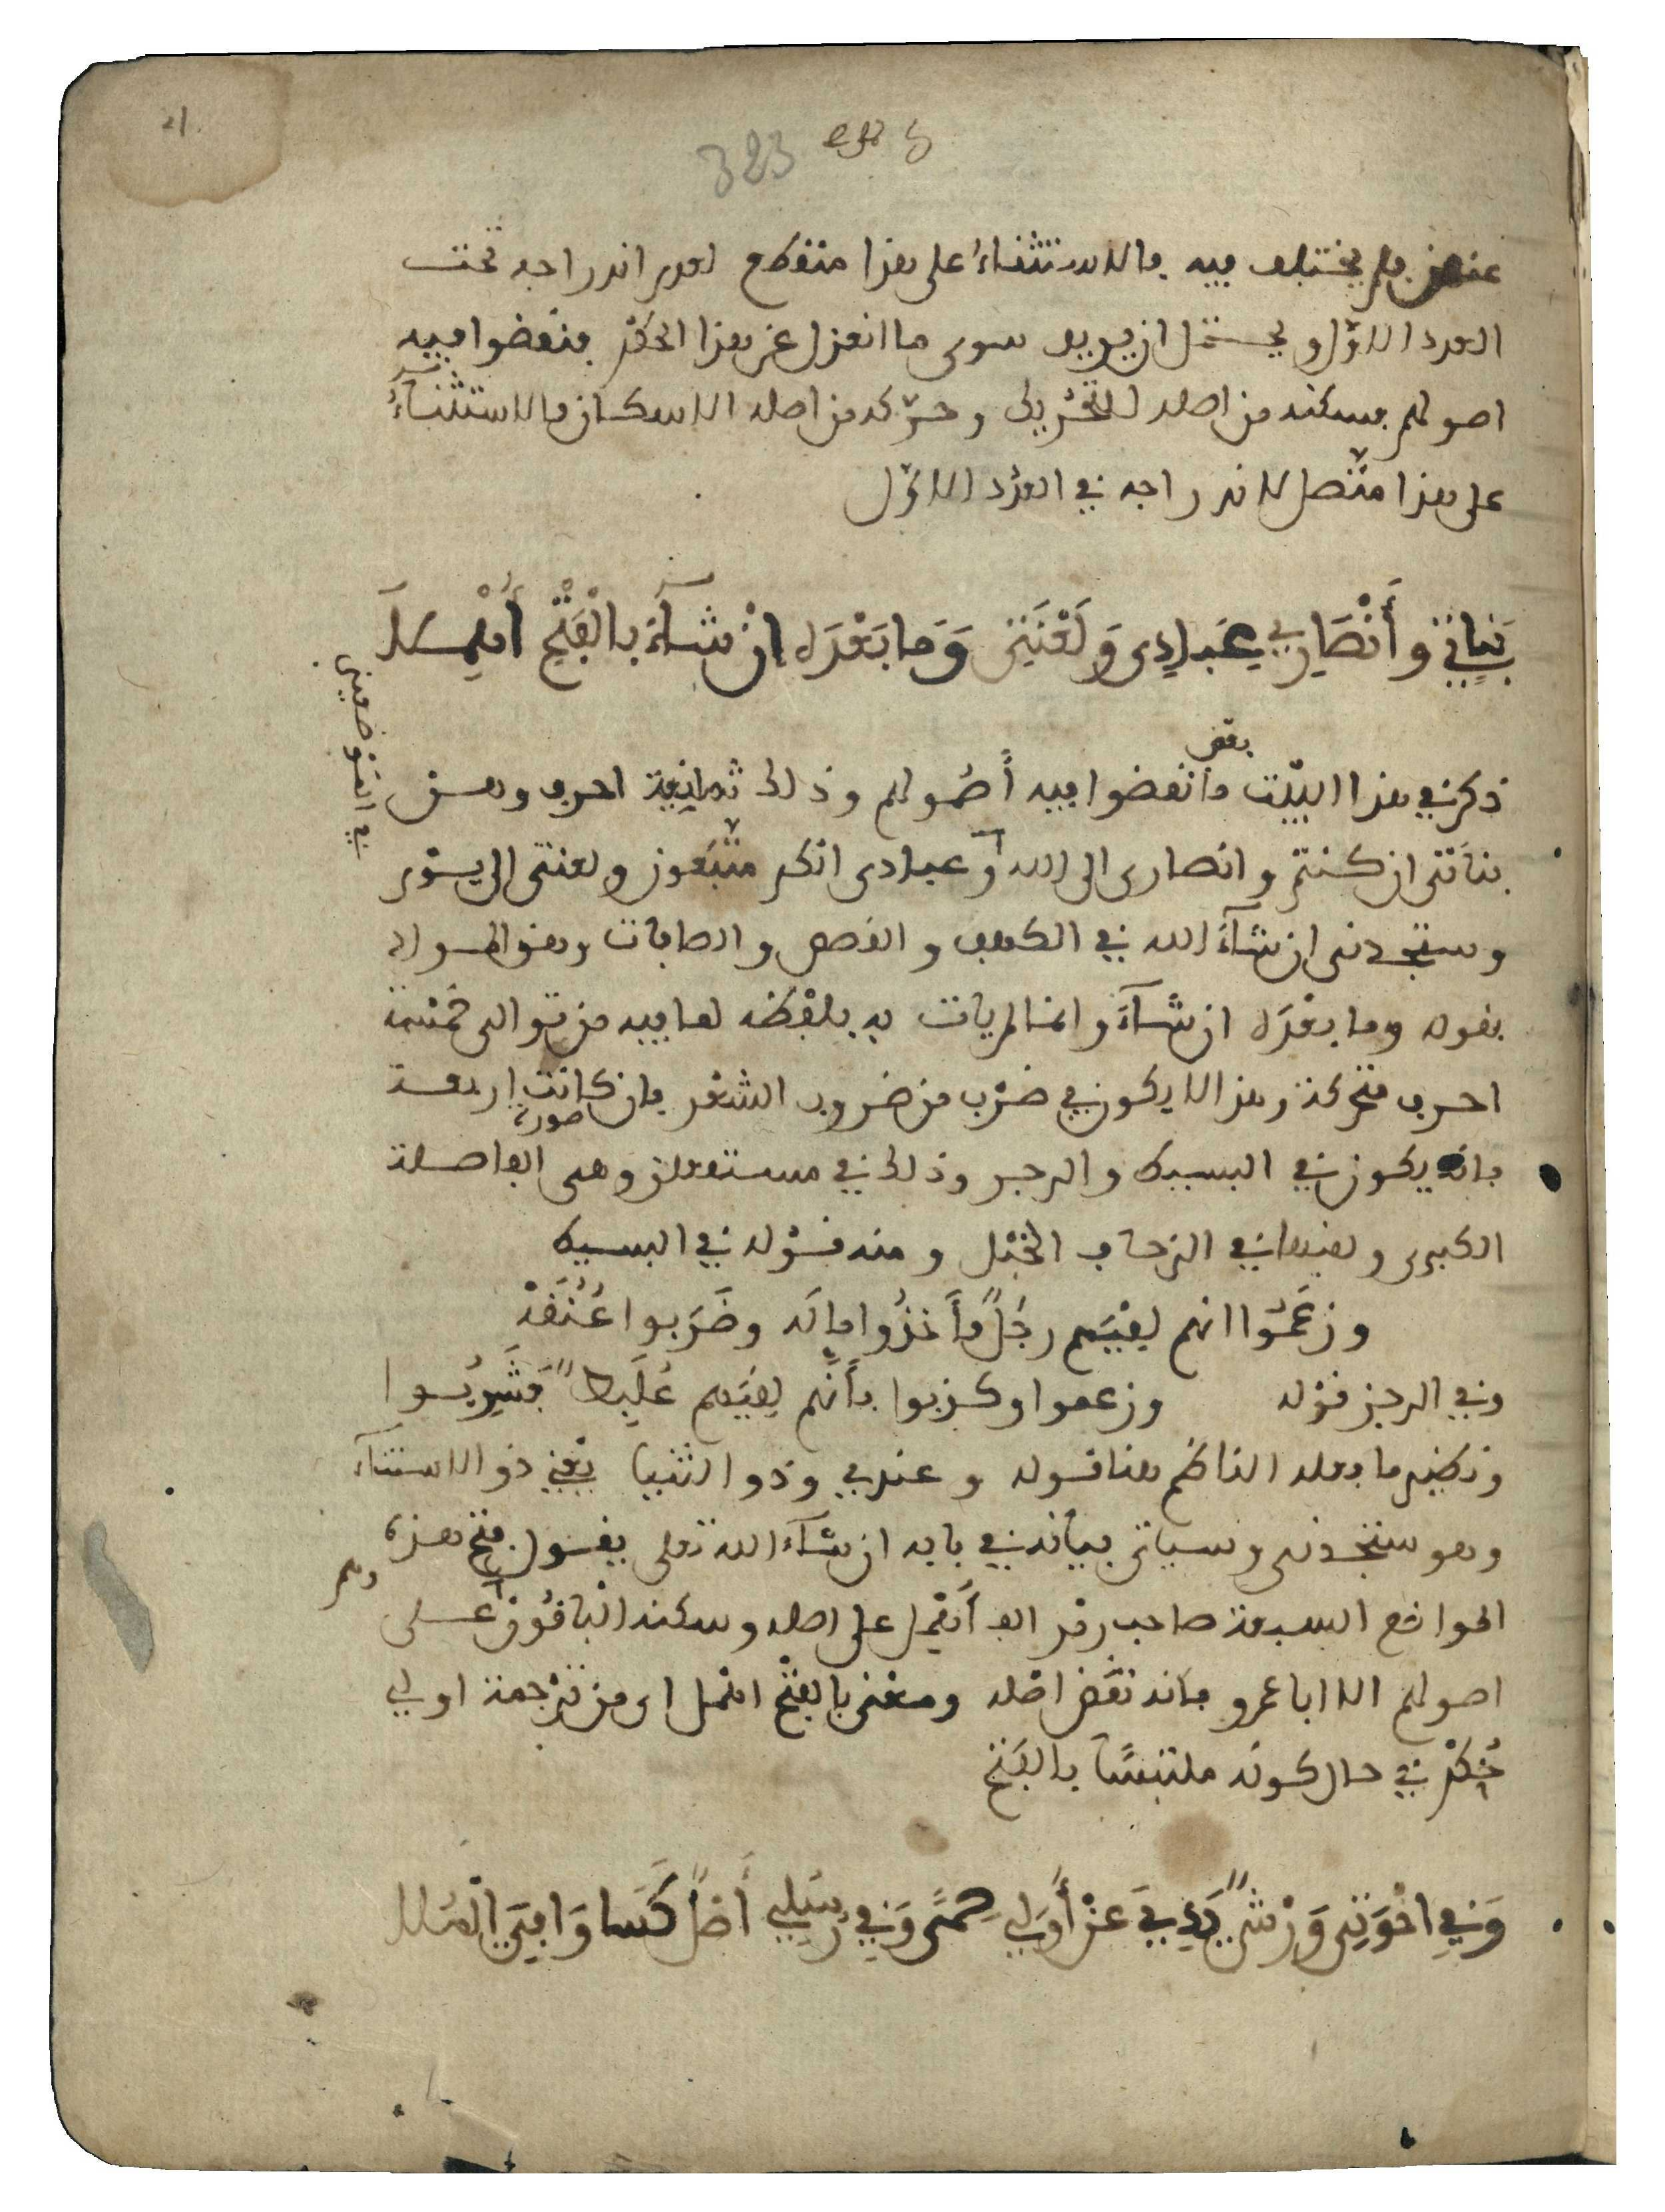 21
323
عنهن فلم يختلف فيه فالاستثناء على هذا منقطع لعدم اندراجه تحت
العدد الاول ويحتمل ان يريد سوى ما انعزل عن هذا الحكم فنقضوا فيه
اصولهم بسكنه من اصله التحريك وحركه من اصله الاسكان فالاستثناء
على هذا متصل لاندراجه في العدد الاول
بَنَاتِي وَأَنْصَارِي عِبَادِي وَلَعْنَتِي وَمَا بَعْدَهُ ان شَآءَ بِالْفَتْحِ أُهْمِلَا
ذكر في هذا البيت ما نقضوا فيه بعض أصولهم وذلك ثمانية احرف وهن
بناتي ان كنتم وانصاري الى الله وعبادي انكم متبعون ولعنتي الى يوم
في الموضعين
وستجدني ان شآء الله في الكهف والقصص والصافات وهو المراد
بقوله وما بعده ان شآء وانما لم يات به بلفظه لما فيه من توالي خمسة
احرف متحركة وهذا لا يكون في ضرب من ضروب الشعر فان كانت اربعة
صورة
فانه يكون في البسيط والرجز وذلك في مستفعلن وهي الفاصلة
الكبرى ولقبها في الزحاف الخبل ومنه قوله في البسيط
وزعَمُوا انهم لقيَهم رجُلٌ فأَخذُوا مالَه وضَرَبوا عُنُقَهْ
وفي الرجز قوله وزعموا وكذبوا بأَنَّهم لقيَهم عُلَبِطٌ فَشَرِبُوا
ونظير ما فعله الناظم هنا قوله وعندي وذو الثنيا يعني ذو الاستثنآء
وهو ستجدني وسياتي بيانه في بابه ان شآء الله تعلى يقول فتح هذه
المواضع السبعة صاحب رمز الف أهمل على اصله وسكنه الباقون على
وهم
اصولهم الا ابا عمرو فانه نقض اصله ومعنى بالفتح اهمل اي من ترجمة اولي
حكم في حال كونه ملتبسًا بالفتح
وَفِي اخْوَتِي وَرْشٌ يَدِي عَنْ أُولِي حِمًى وَفِي رُسُلِي أَصْلٌ كَسَا وَافِيَ الْمُلَا